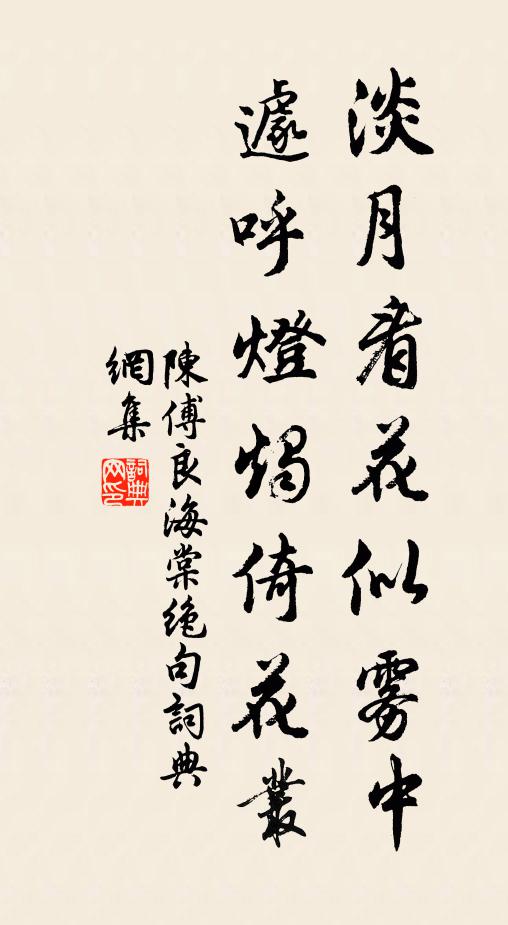 淡月看花似雾中
遽呼燈燭倚花叢
陳傅良海棠絶句詞典
網集
詞典
网印